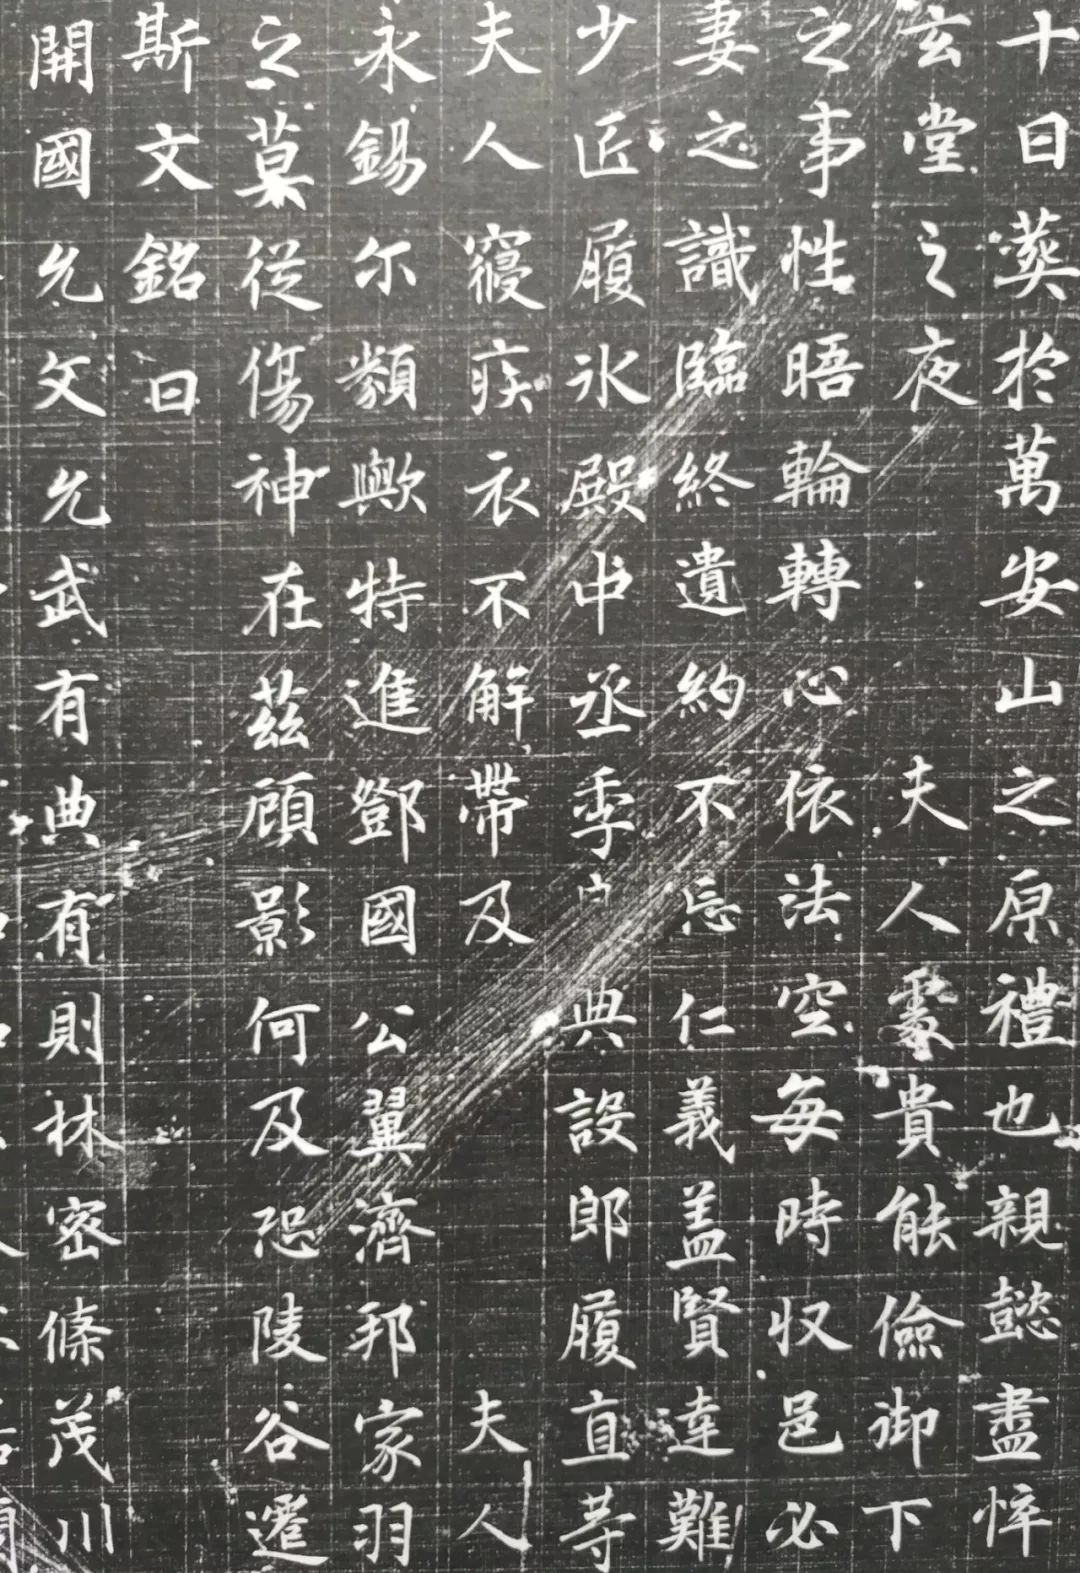 十日葬於萬安山之原禮也親懿盡悴
玄堂之夜 夫人處貴能儉御下
之事性晤輪轉心依法空每時収邑必
妻之識臨終遺約不忘仁義盖賢達難
少匠履氷殿中丞季典設郎履直等
夫人寢疾衣不解帶及 夫人
永錫尔類歟特進鄧國公翼濟邦家羽
之莫從傷神在茲顧影何及恐陵谷遷
斯文銘曰
開國允文允武有典有則林密條茂川